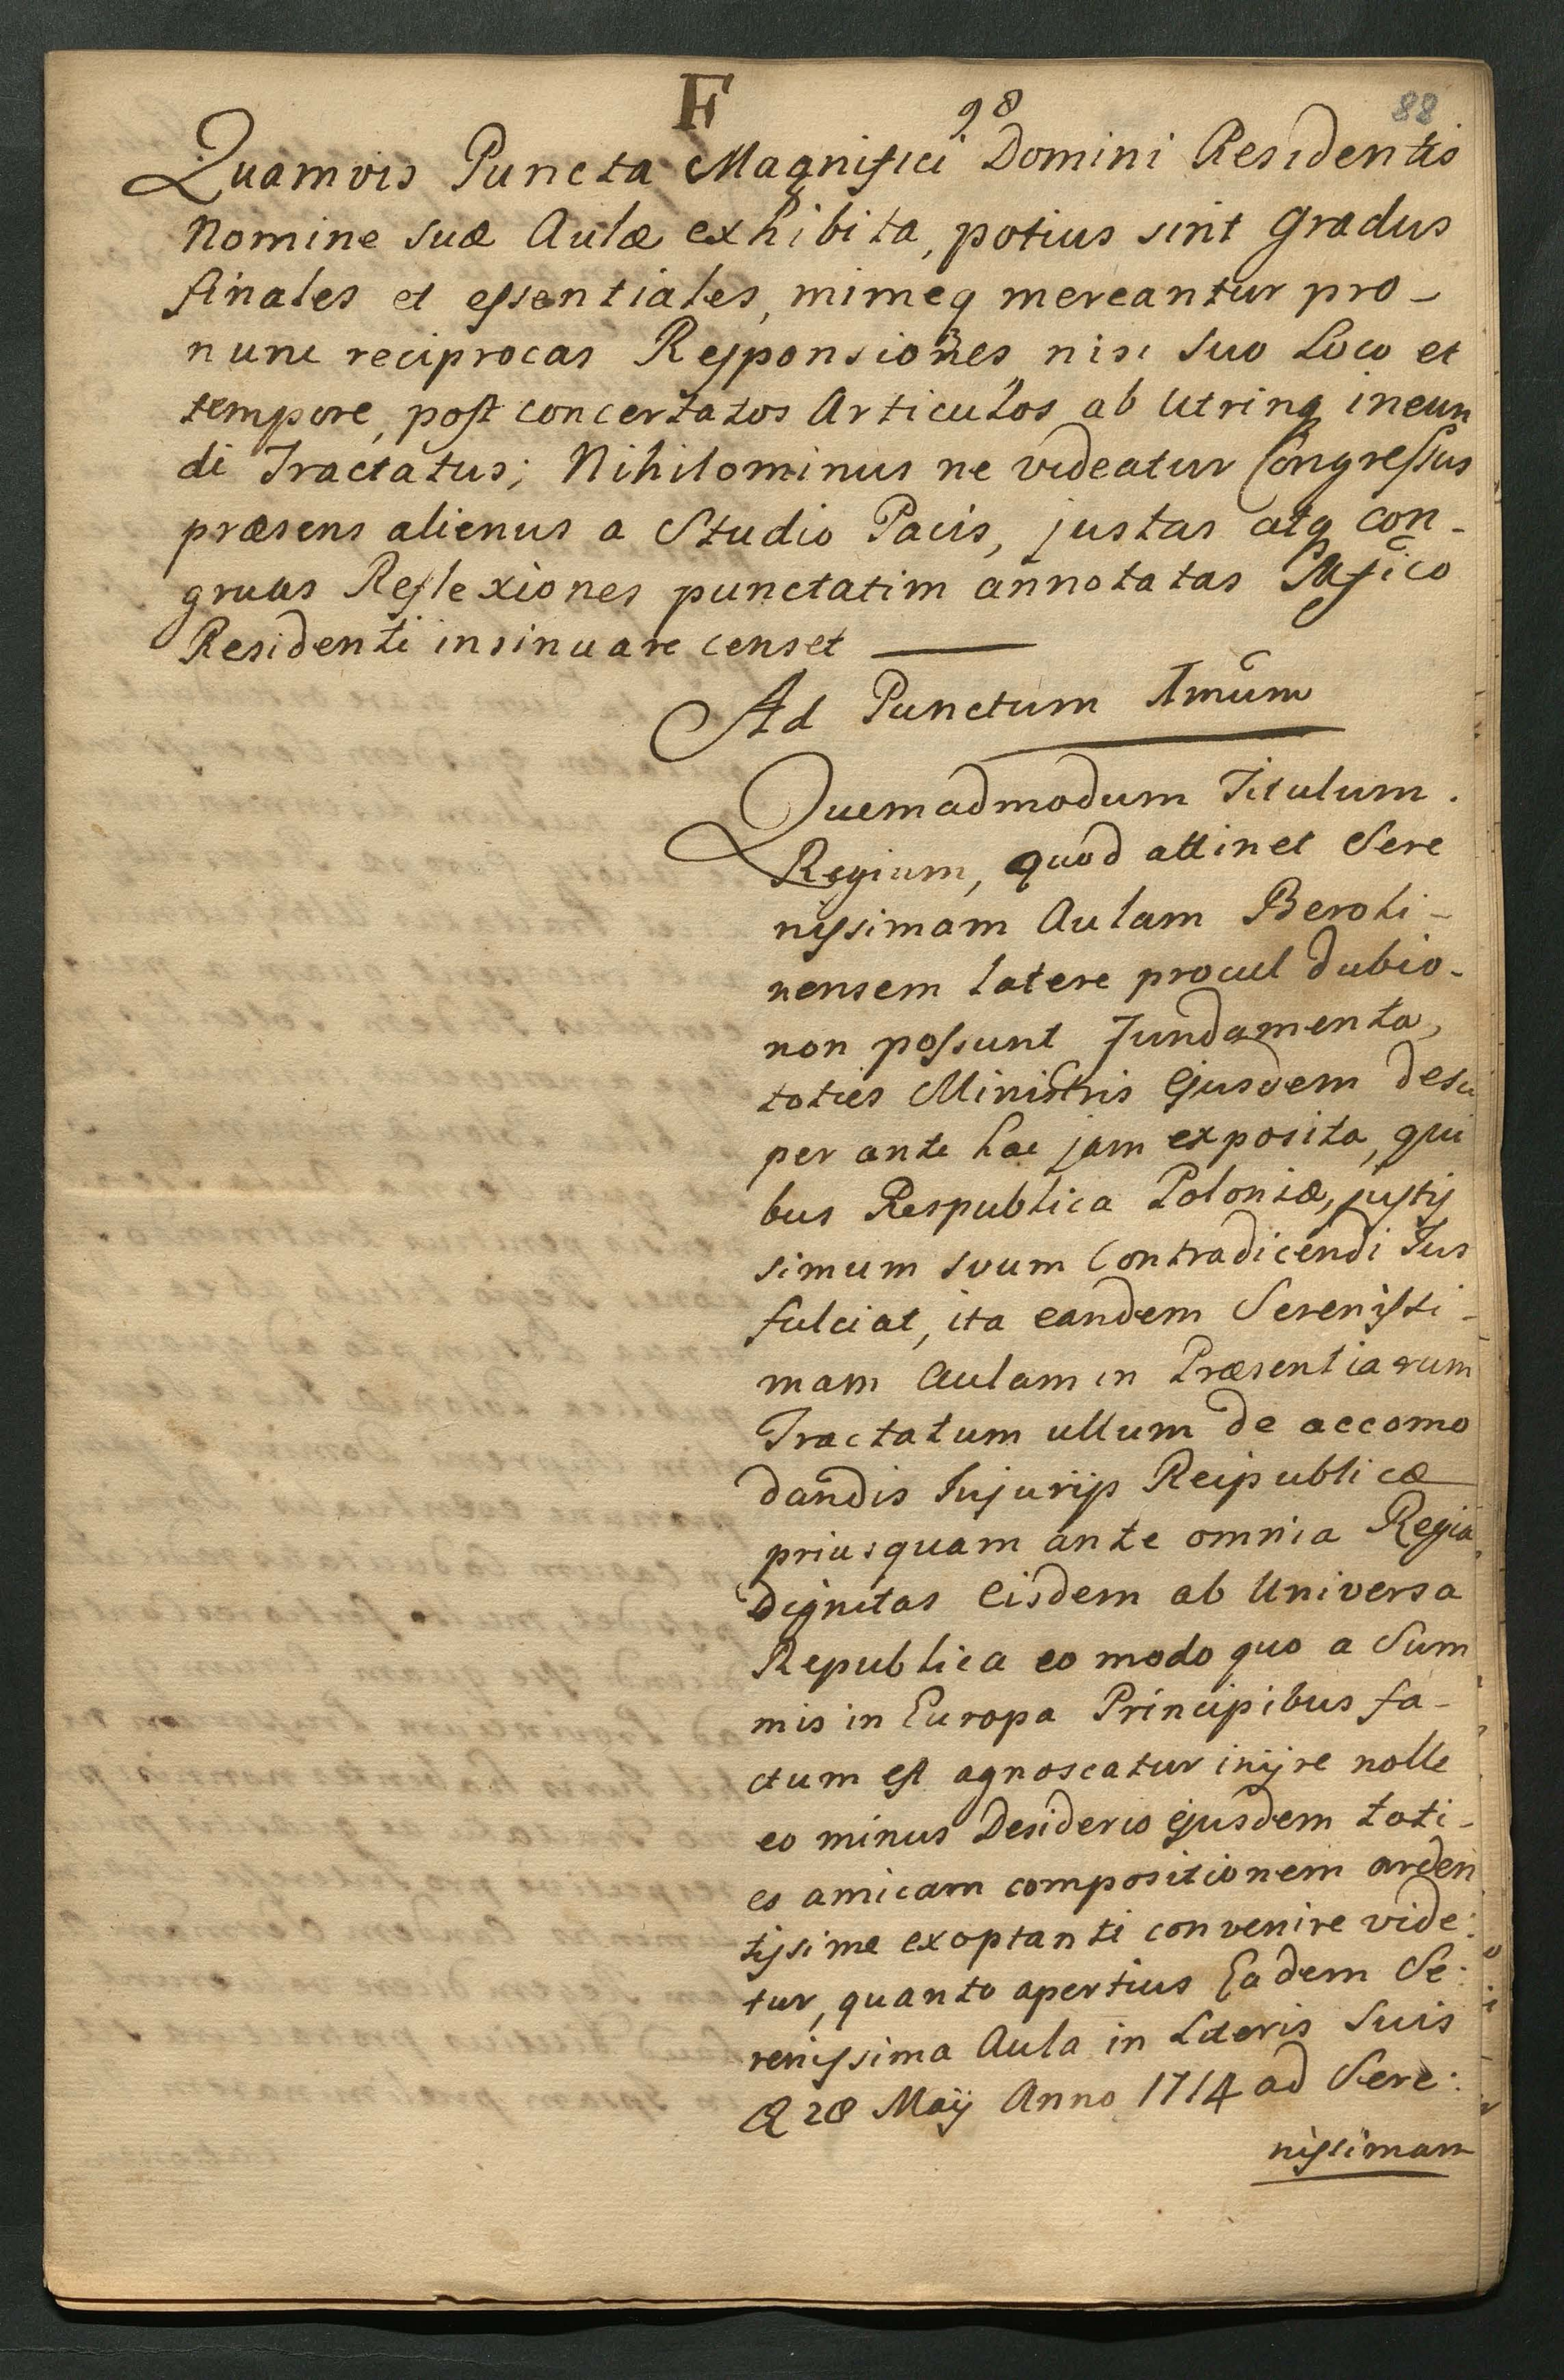 F
98
88
Quamvis Puncta Magnifici Domini Residentis
Nomine suæ Aulæ exhibita, potius sint gradus
finales et essentiales, mimeq mereantur pro-
nunc reciprocas Responsiones nisi suo Loco et
tempore, post concertatos Articulos ab Utrinq ineun
di Tractatus; Nihilominus ne videatur Congressus
præsens alienus a Studio Pacis, justas atq con-
gruas Reflexiones punctatim annotatas Mfico
Residenti insinuare censet
Ad Punctum 1mum
Quemadmodum Titulum.
Regium, quod attinet Sere
nissimam Aulam Beroli-
nensem latere procul dubio-
non possunt Fundamenta,
toties Ministris Ejusdem desu
per ante hac jam exposita, qui
bus Respublica Poloniæ, justis
simum suum Contradicendi Jus
fulciat, ita eandem Serenissi-
mam Aulam in Præsentiarum
Tractatum ullum de accomo
dandis Injurijs Reipublicæ
priusquam ante omnia Regia
Dignitas Eisdem ab Universa
Republica eo modo quo a Sum
mis in Europa Principibus fa-
ctum est agnoscatur inijre nolle
eo minus Desiderio ejusdem toti-
es amicam compositionem arden
tissime exoptanti convenire vide:
tur, quanto apertius Eadem Se:
renissima Aula in Literis Suis
28 Maij Anno 1714 ad Sere:
nissimam